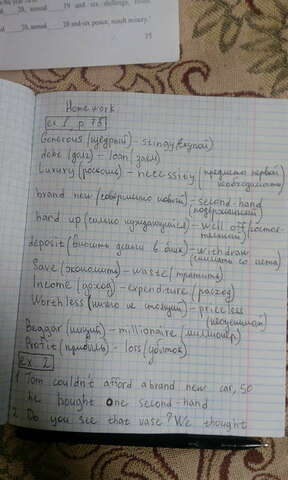 20, annual 19 and six challenge,
20, annual 20 and-six pence, result misery.'
75
Homework.
ex 1, p 78
Generous (щедрый) - stingy (скупой)
debt (долг) - loan (заем)
Luxury (роскошь) - necessity (предметы первой
необходимости)
brand new (совершенно новый) - second-hand
(подержанный)
hard up (сильно нуждающийся) - well off (состоя-
тельный)
deposit (вносить деньги в банк) - withdraw
(снимать со счета)
Save (экономить) - waste (тратить)
Income (доход) - expenditure (расход)
Worthless (ничего не стоящий) - priceless
(бесценный)
Beggar (нищий) - millionaire (миллионер)
Profit (прибыль) - loss (убыток)
ex 2
1 Tom couldn't afford a brand new car, so
he bought one second-hand
2 Do you see that vase? We thought